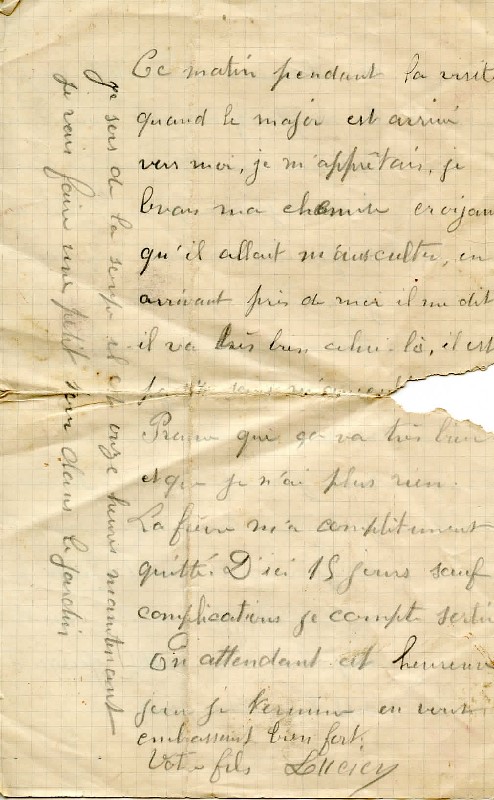 Ce matin pendant la visite
quand le major est arrivé
vers moi, je m'apprêtais, je
levais ma chemise croyan
qu'il allait m'ausculter, en
arrivant près de moi il me dit
il va très bien celui-là, il est
sans
Preuve que ça va très bien
et que je n'ai plus rien.
La fièvre m'a complitement
quitté. D'ici 15 jours sauf
complications je compte sortir
En attendant cet heureux
jour je termine en vous
embrassant bien fort.
Votre fils Lucien
je sors de la soupe il est onze heures maintenant
je vais faire une petit tour dans le jardin